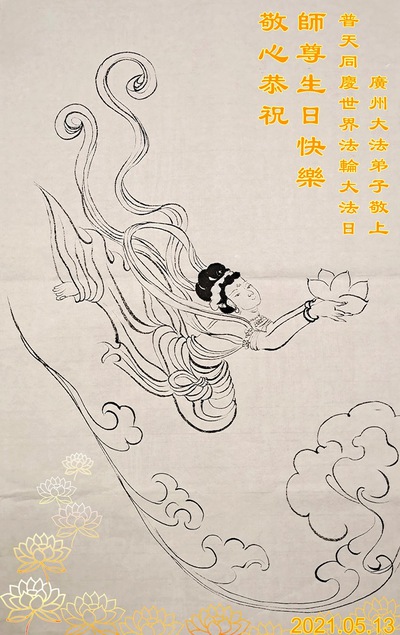 敬心恭祝
師尊生日快樂
普天同慶世界法輪大法日
廣州大法弟子敬上
2021.05.13